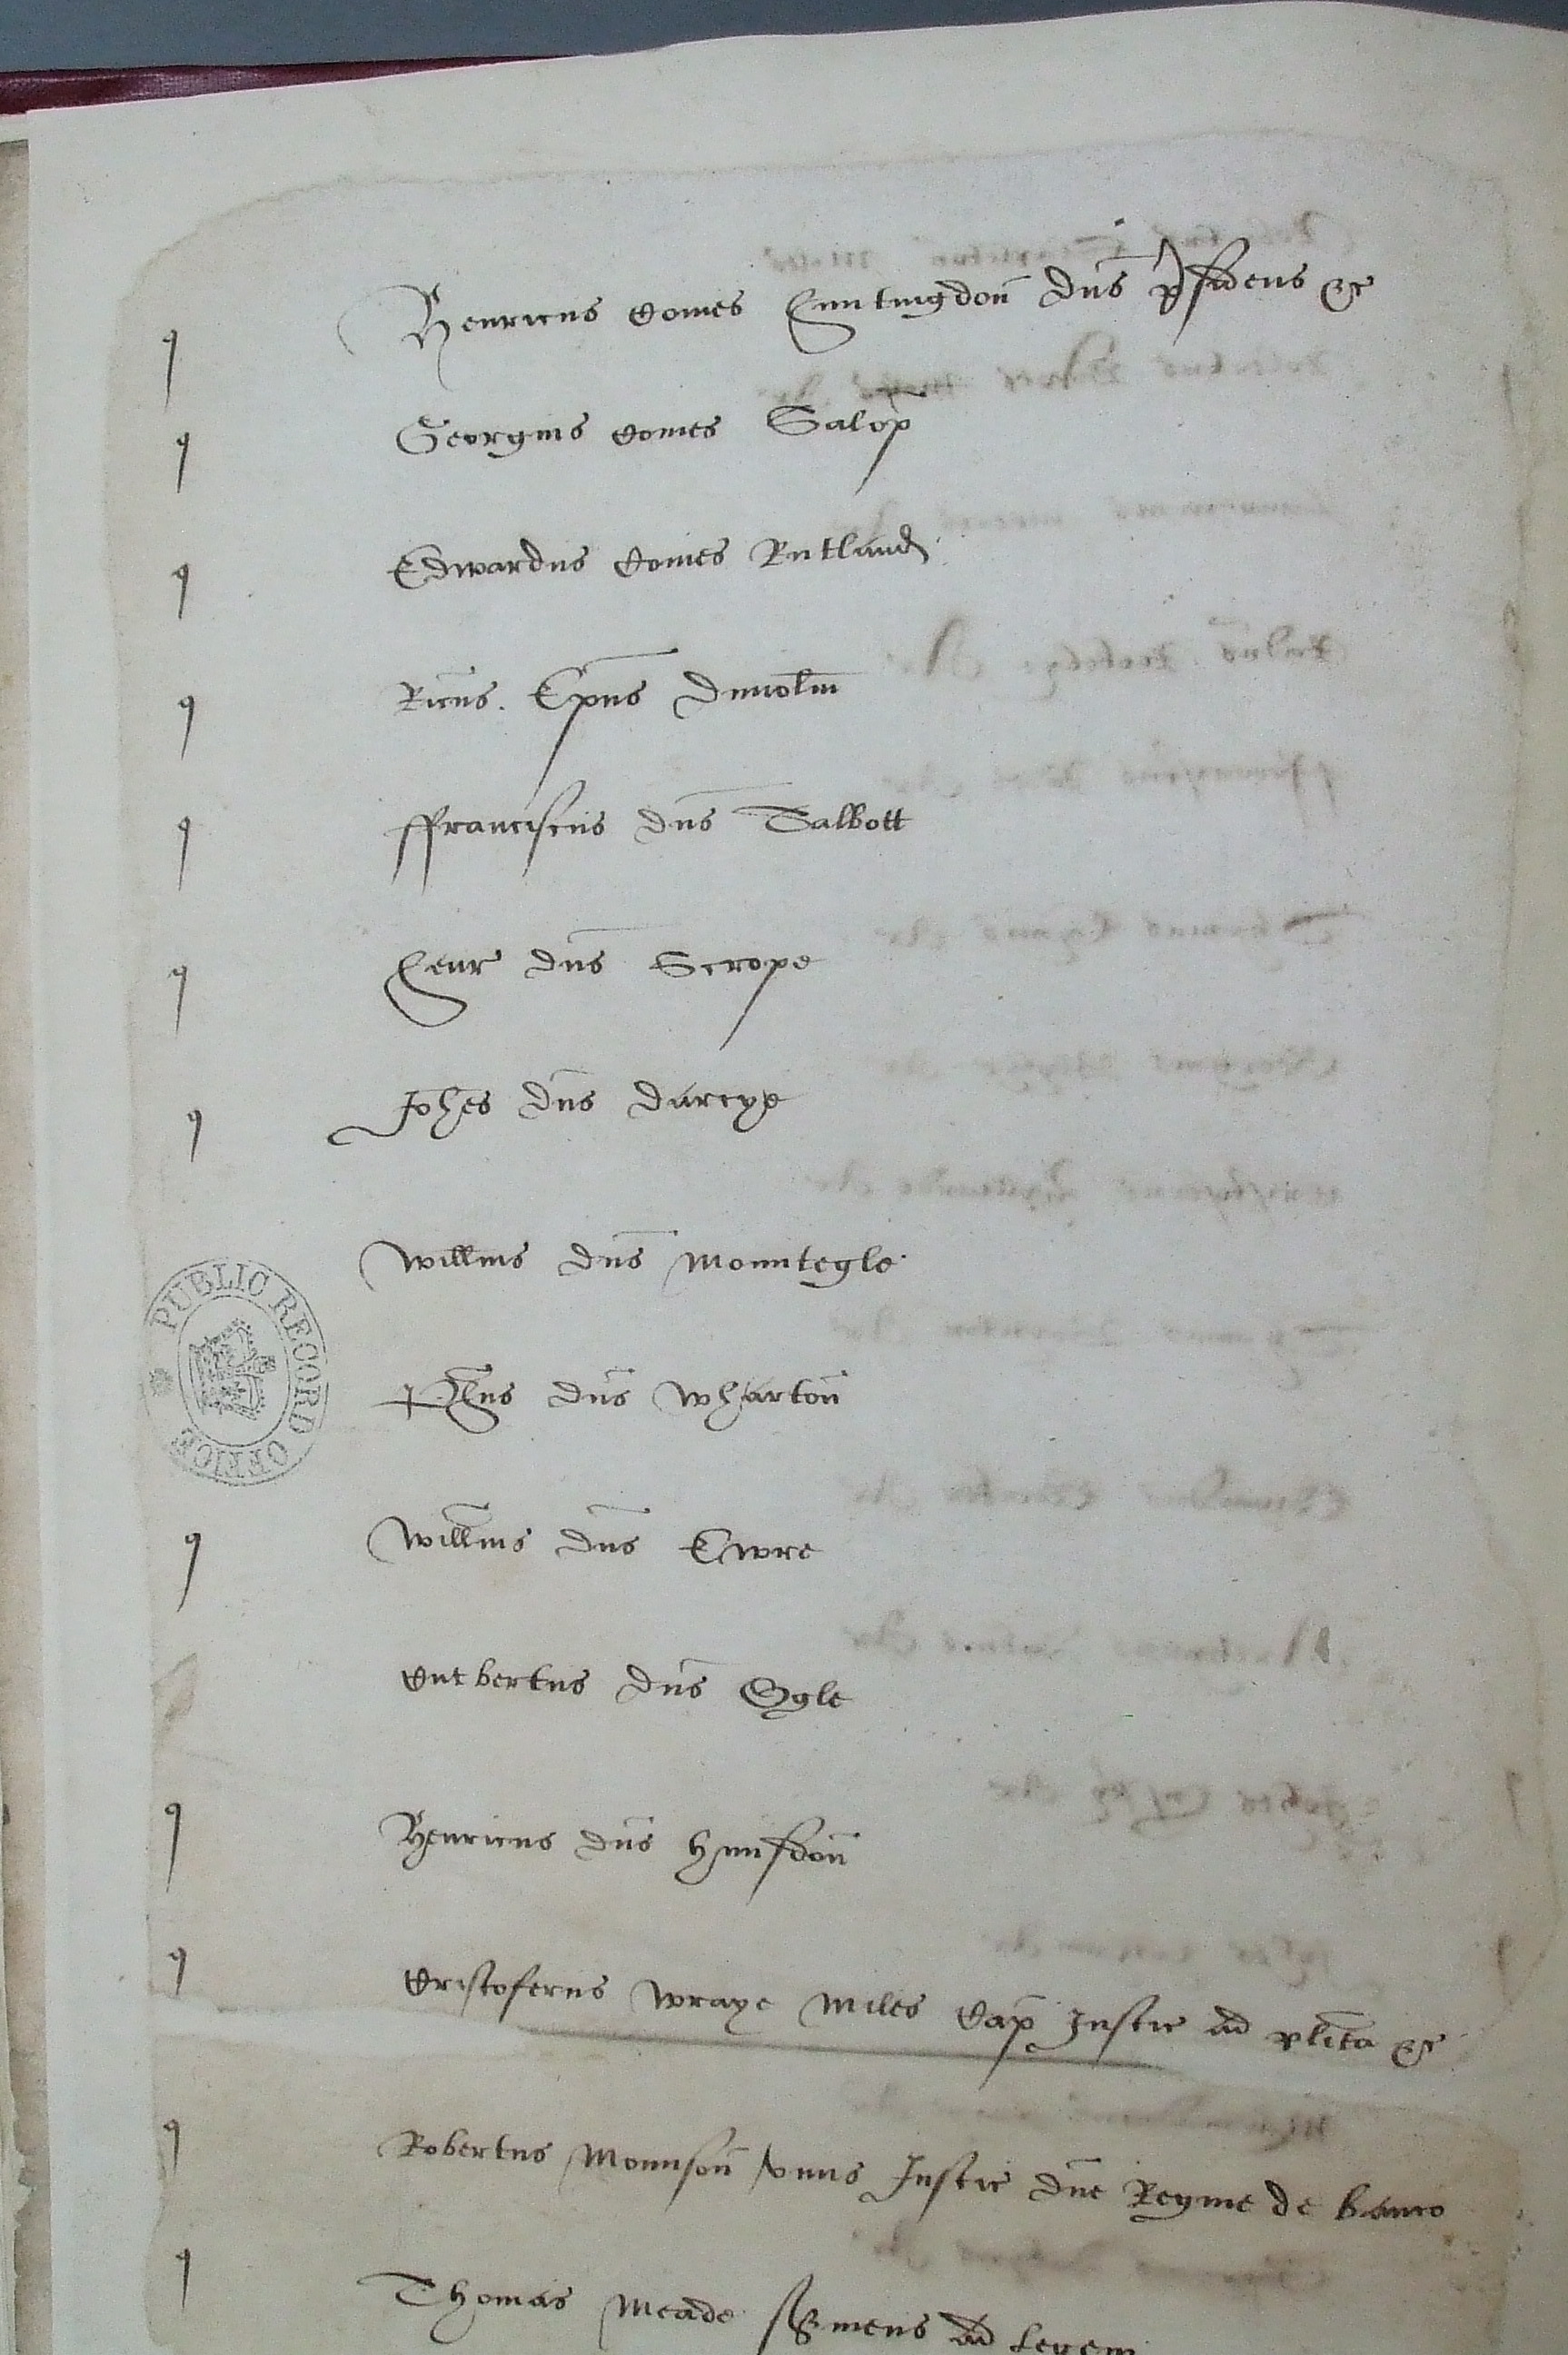 Henricus Comes Huntingdon dns Psidens &c
Georgius Comes Salop
Edwardus Comes Rutland
Ricus Epus Dunolm
ffranciscus dns Talbott
Henr dns Scrope
Johes dns Darcye
Willms dns Mountegle
PUBLIC RECORD OFFICE
Phus dns Wharton
Willms dns Ewre
Cutbertus dns Ogle
Henricus dns Hunsdon
Cristoferus Wraye Miles Cap Justic ad plita &c
Robertus Mounson unus Justic dne Regine de banco
Thomas Meade s9viens ad legem